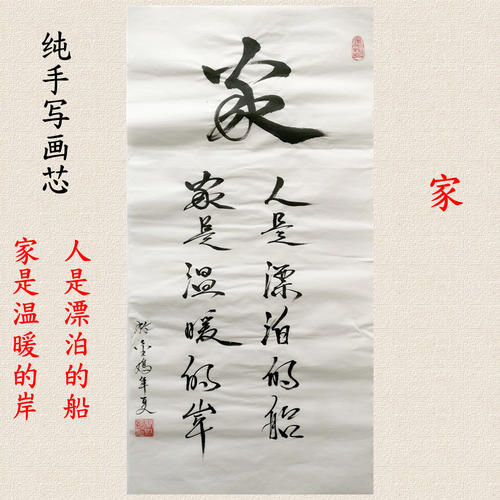 纯手写画芯
家
人是漂泊的船
家是温暖的岸
家
人是漂泊的船
家是温暖的岸
金鸡年夏